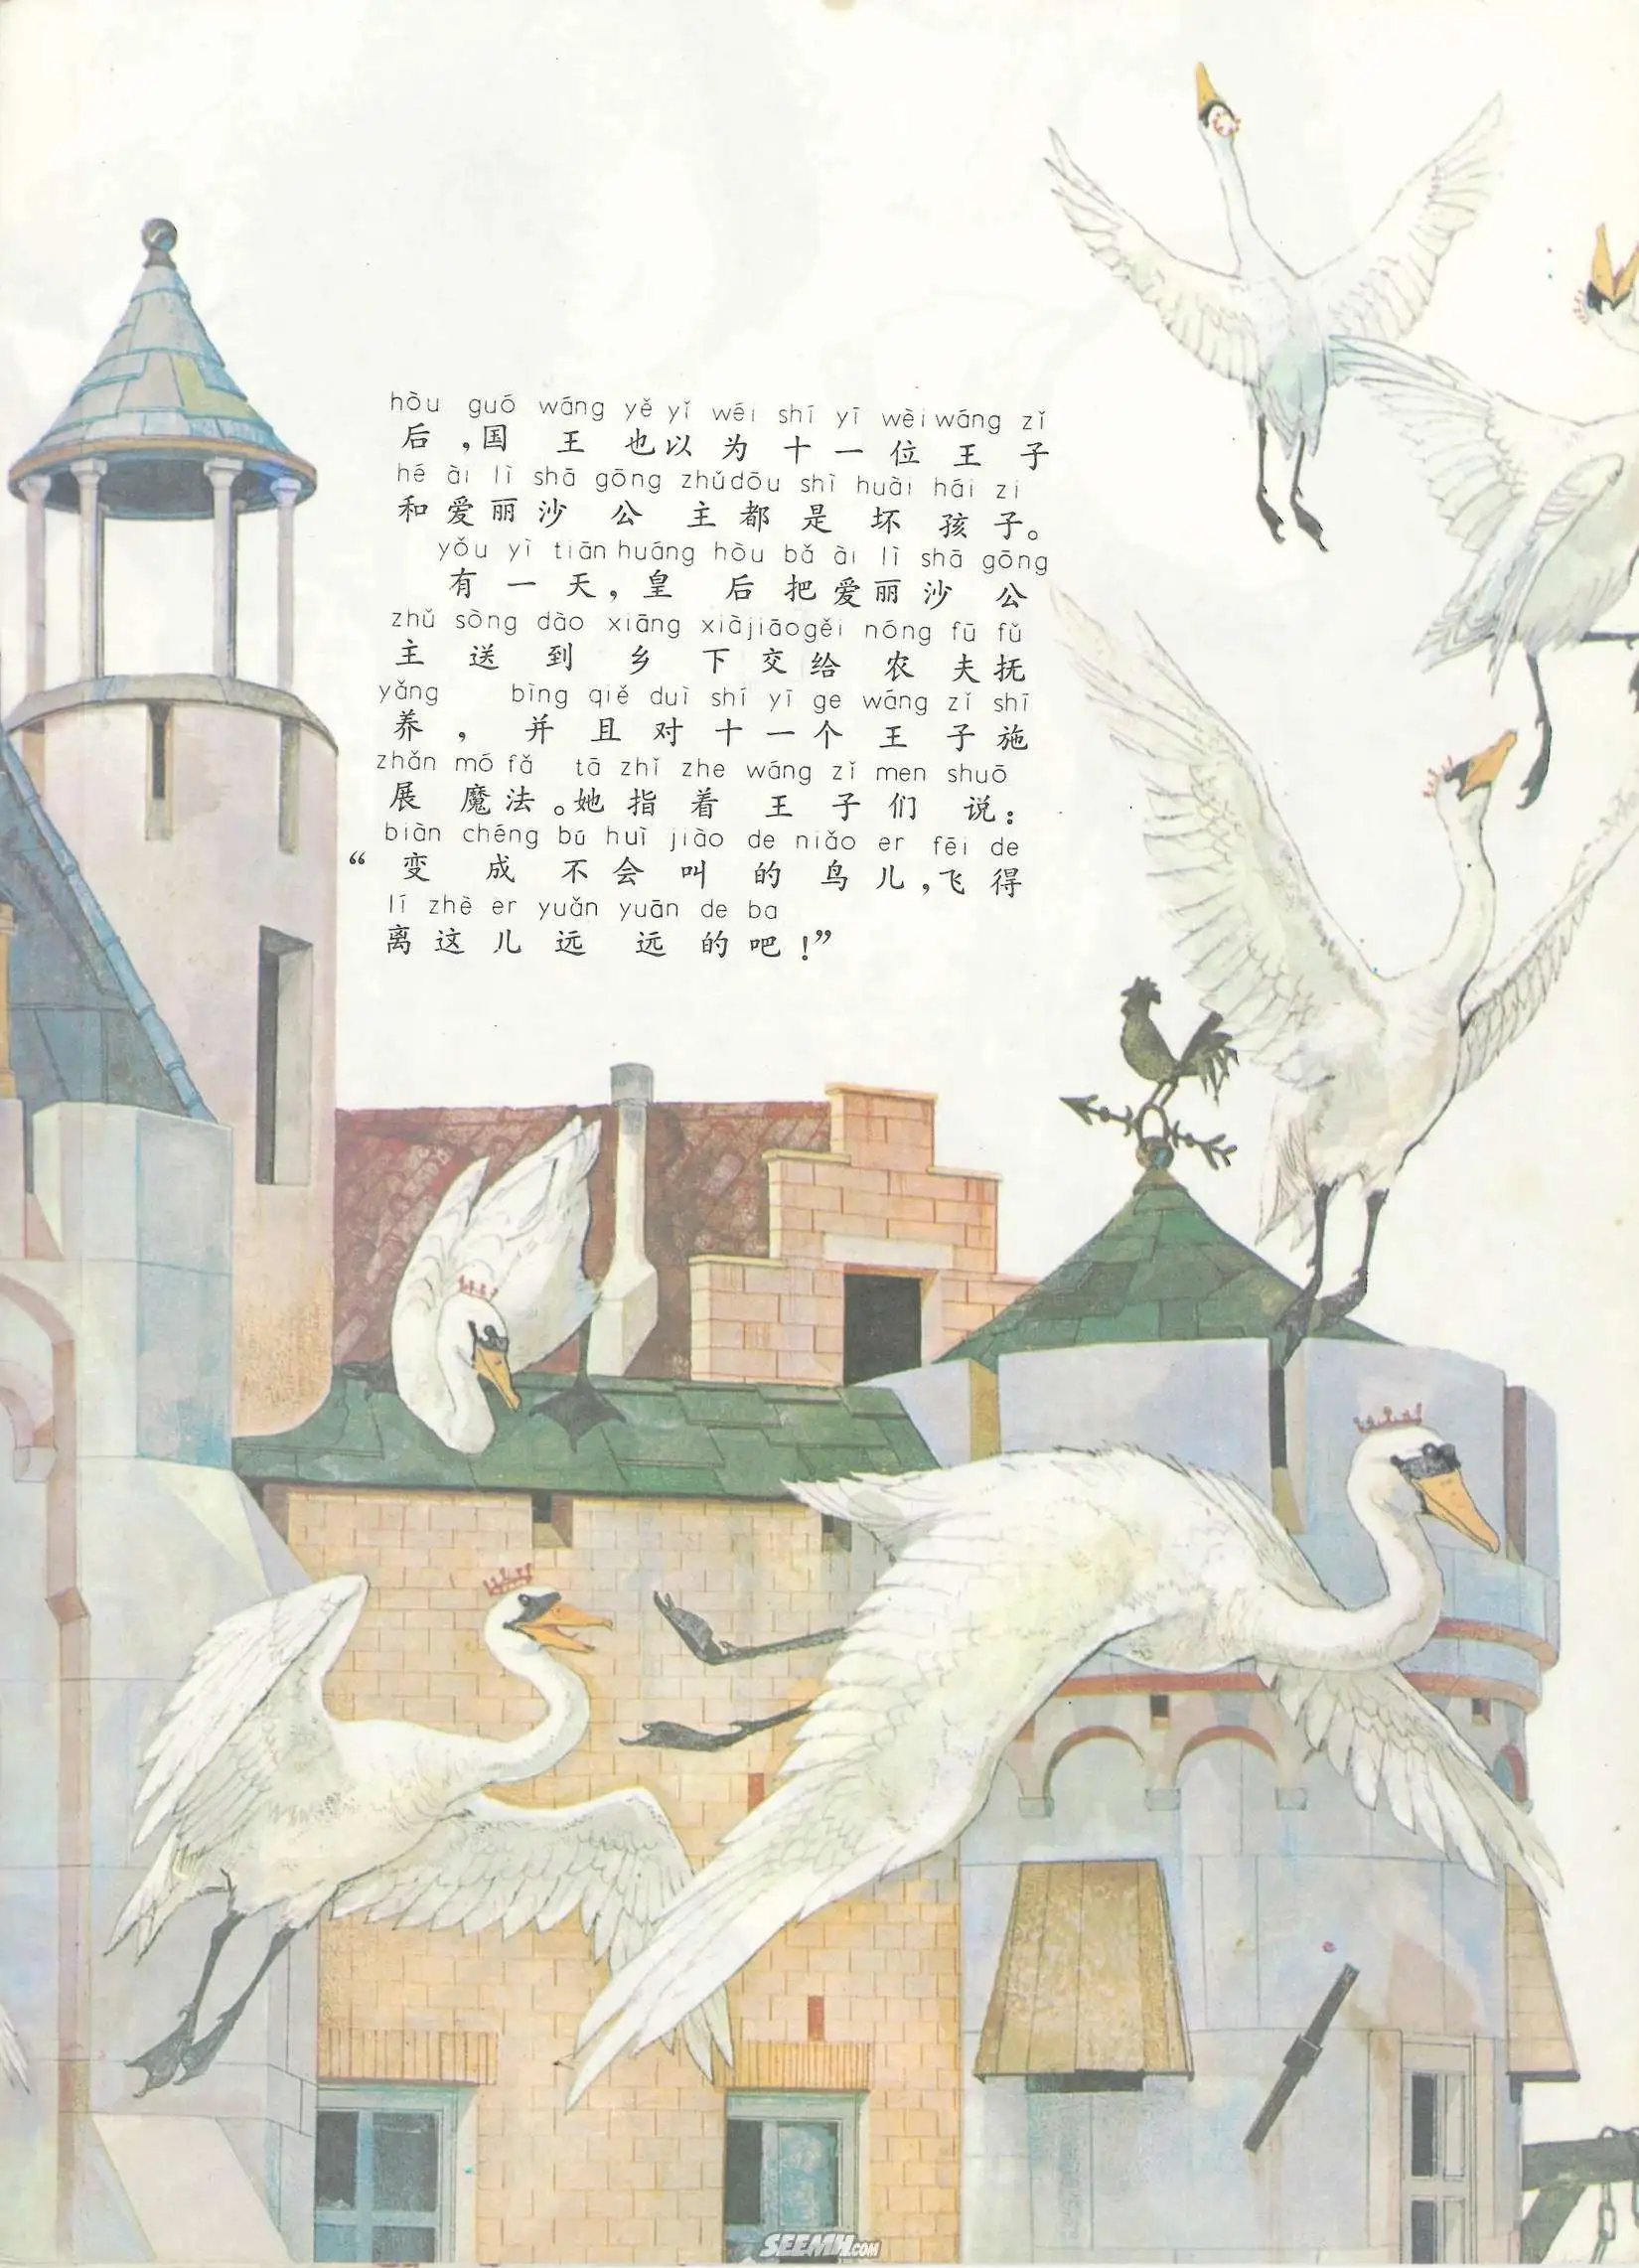 hòu guó wáng yě yǐ wéi shí yī wèi wáng zǐ
后，国王也以为十一位王子
hé ài lì shā gōng zhǔ dōu shì huài hái zi
和爱丽沙公主都是坏孩子。
yǒu yì tiān huáng hòu bǎ ài lì shā gōng
有一天，皇后把爱丽沙公
zhǔ sòng dào xiāng xià jiāo gěi nóng fū fǔ
主送到乡下交给农夫抚
yǎng bìng qiě duì shí yī ge wáng zǐ shī
养，并且对十一个王子施
zhǎn mó fǎ tā zhǐ zhe wáng zǐ men shuō
展魔法。她指着王子们说：
biàn chéng bú huì jiào de niǎo er fēi de
“变成不会叫的鸟儿，飞得
lí zhè er yuǎn yuǎn de ba
离这儿远远的吧！”
SEEMH.COM